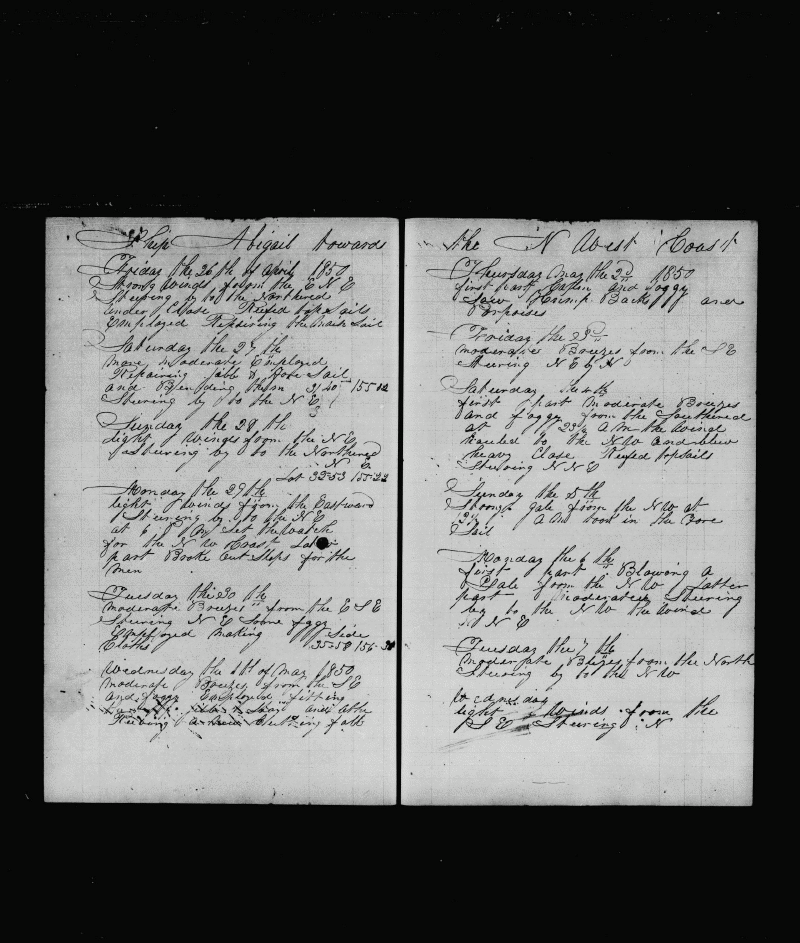 Ship Abigail towards
Friday the 26th of april 1850
Strong winds from the E N E
Steering by to the Northered
under Close Reefed top Sails
Employed Repairing the main Sail
Saturday the 27 th
more moderate Employed
Repairing Jibb & fore Sail
and Bending them 31=40 155=12
Steering by to the N E
Sunday the 28 th
light winds from the N E
Steering by to the Northered
N E
Lat 33=53 155=22
Monday the 29 th
light winds from the Eastward
Steering by to the N E
at 6 P M Set the watch
for the N W Coast Latter
part Broke out Slops for the
men
Tuesday the 30 th
moderate Breezes from the E S E
Steering N E Some fogg
Employed making Side
Cloths 35=58 156=30
Wednesday the 1st of May 1850
moderate Breezes from the S E
and foggy Employed fitting
and
Reeving a new Cutting fall
the N West Coast
Thursday may the 2d 1850
first part Calm and foggy
Saw Hump Backs and
Porpoises
Friday the 3d
moderate Breezes from the S E
Steering N E by N
Saturday the 4 th
first part moderate Breezes
and foggy from the Southered
at A M the wind
hauled to the N W and blew
heavy Close Reefed topsails
Steering N N E
Sunday the 5 th
Strong gale from the N W at
A M took in the Fore
Sail
Monday the 6 th
first part Blowing a
Gale from the N W Latter
part moderately Steering
by to the N W the wind
N E
Tuesday the 7 th
moderate Breezes from the North
Steering by to the N W
Wednesday
light winds from the
S E Steering N